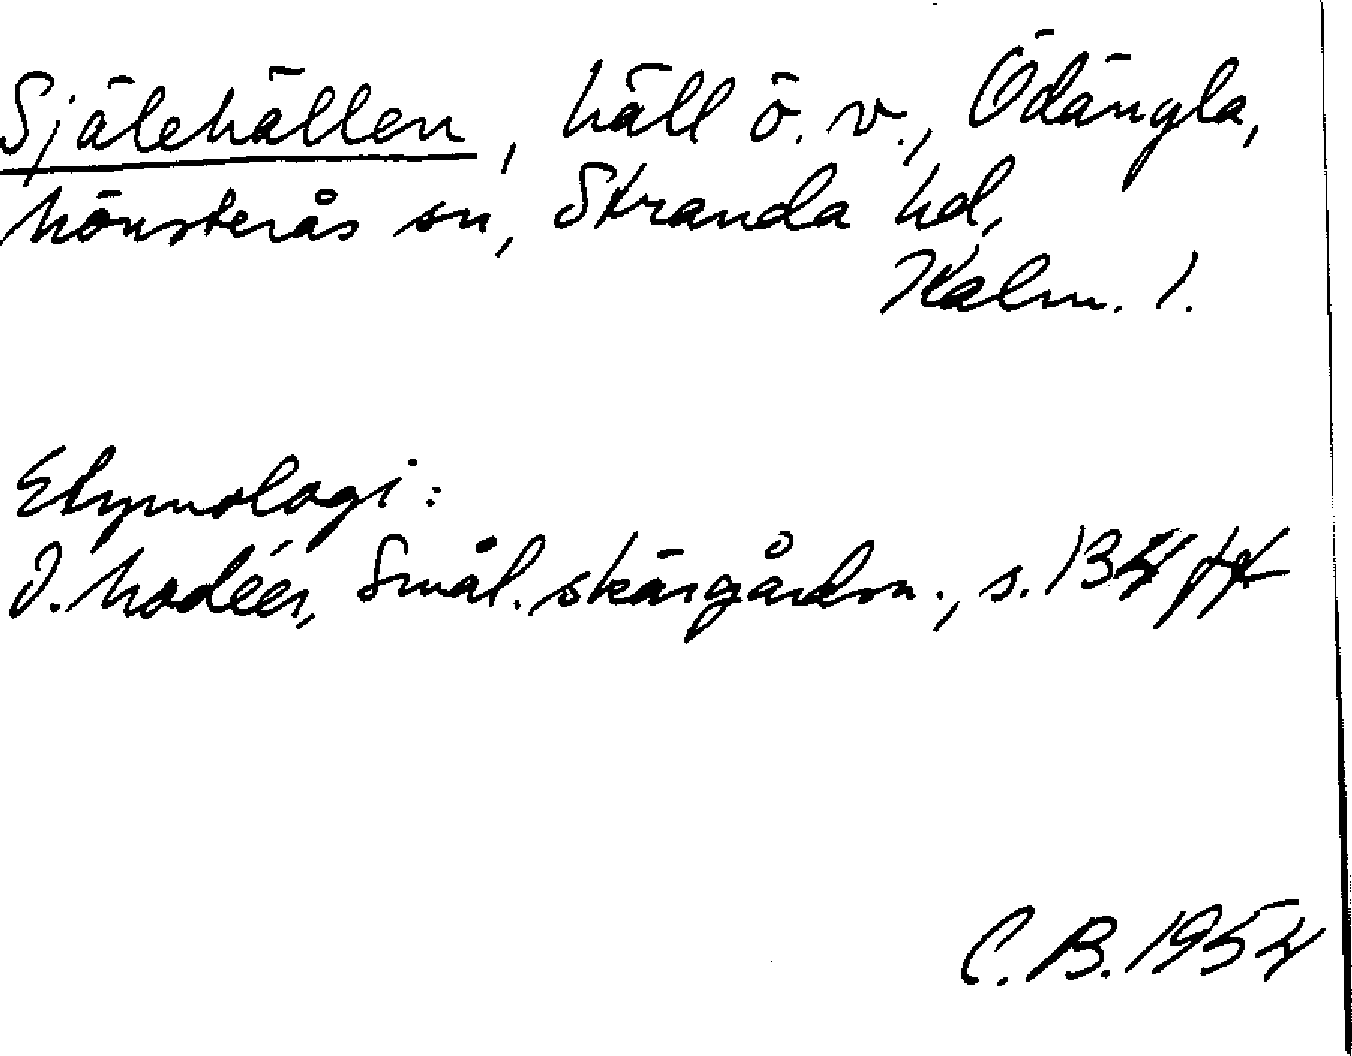 Själehällen, häll ö. v., Ödängla,
Mönsterås sn, Stranda hd,
Kalm. l.
Etymologi:
I. Modéer, Smål. skärgårdsn., s. 134 ff
C. B. 1954